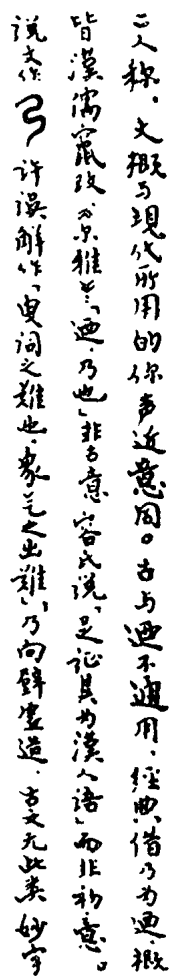 二人称。文概与现代所用的你声近意同。古与迺不通用,經典借乃为迺,概
皆漢儒竄改。尔雅:「迺,乃也」非古意 容氏说,足証其为漢人語」而非初意。
说文作 𠄎 许误解作「曳词之难也。象气之出难」,乃向壁虚造,古文无此类妙字